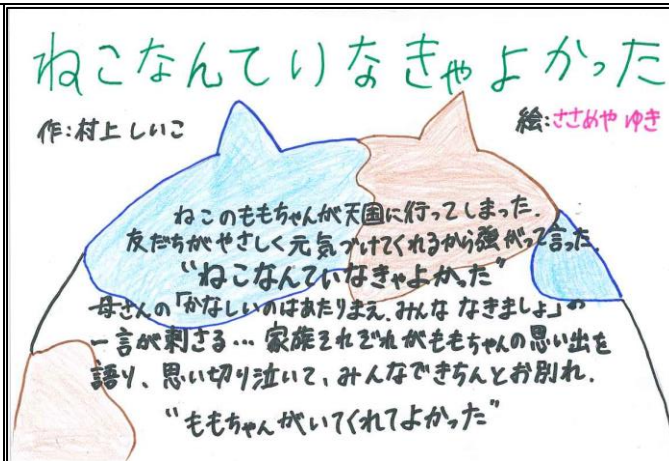 ねこなんていなきゃよかった
作:村上しいこ
絵:ささめやゆき
ねこのももちゃんが天国に行ってしまった.
友だちがやさしく元気づけてくれるから強がって言った.
“ねこなんていなきゃよかった”
母さんの「かなしいのはあたりまえ.みんな なきましょ」の
一言が刺さる… 家族それぞれがももちゃんの思い出を
語り、思い切り泣いて、みんなできちんとお別れ.
“ももちゃんがいてくれてよかった”